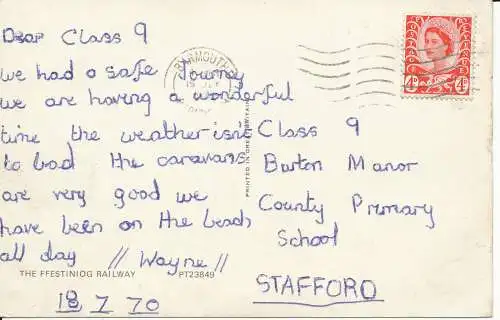 Dear Class 9
we had a safe Journey
we are having a wonderful
time the weather isnt
to bad the caravans
are very good we
have been on the beach
all day // Wayne //
THE FFESTINIOG RAILWAY PT23849
18 7 70
PRINTED IN GREAT BRITAIN
BARMOUTH
4D 4D
Class 9
Barton Manor
County Primary
School
STAFFORD